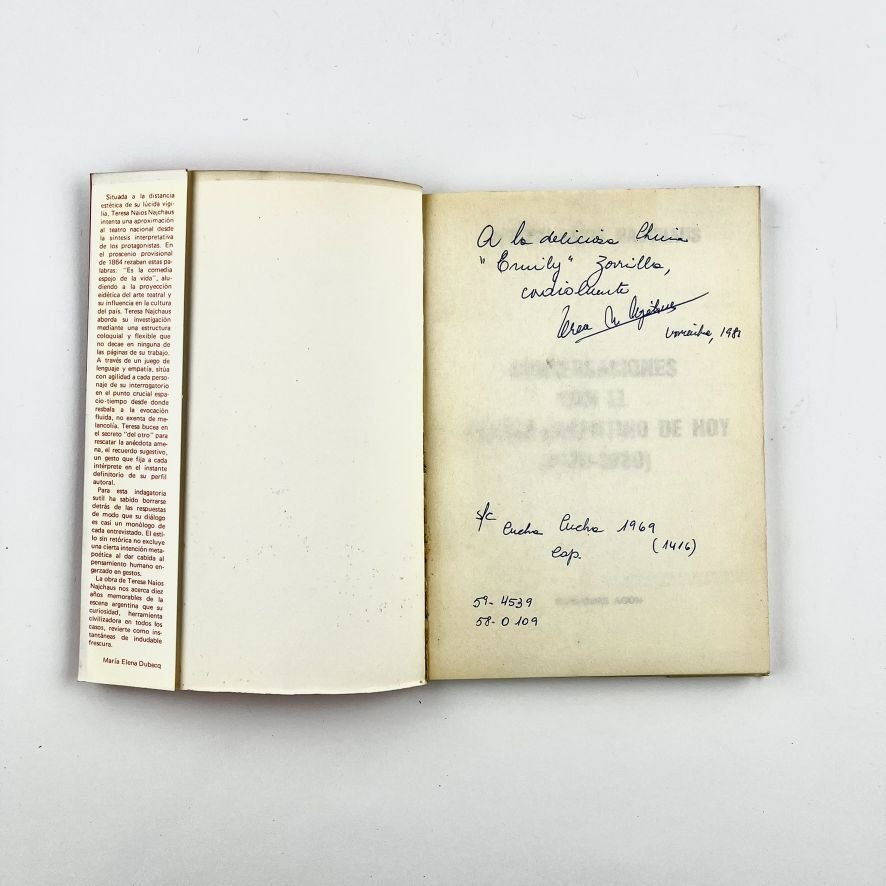 Situada a la distancia
estética de su lúcida vigi-
lia, Teresa Naios Najchaus
intenta una aproximación
al teatro nacional desde
la síntesis interpretativa
de los protagonistas. En
el proscenio provisional
de 1864 rezaban estas pa-
labras: "Es la comedia
espejo de la vida", alu-
diendo a la proyección
eidética del arte teatral y
su influencia en la cultura
del país. Teresa Najchaus
aborda su investigación
mediante una estructura
coloquial y flexible que
no decae en ninguna de
las páginas de su trabajo.
A través de un juego de
lenguaje y empatía, sitúa
con agilidad a cada perso-
naje de su interrogatorio
en el punto crucial espa-
cio-tiempo desde donde
resbala a la evocación
fluida, no exenta de me-
lancolía. Teresa bucea en
el secreto "del otro" para
rescatar la anécdota ame-
na, el recuerdo sugestivo,
un gesto que fija a cada
intérprete en el instante
definitorio de su perfil
autoral.
Para esta indagatoria
sutil ha sabido borrarse
detrás de las respuestas
de modo que su diálogo
es casi un monólogo de
cada entrevistado. El esti-
lo sin retórica no excluye
una cierta intención meta-
poética al dar cabida al
pensamiento humano en-
garzado en gestos.
La obra de Teresa Naios
Najchaus nos acerca diez
años memorables de la
escena argentina que su
curiosidad, herramienta
civilizadora en todos los
casos, revierte como ins-
tantáneas de indudable
frescura.
María Elena Dubecq
A la deliciosa China
"Emily" Zorrilla,
cordialmente
1981
CONVERSACIONES
CON EL
DE HOY
s/c Cucha Cucha 1969
Cap. (1416)
59-4539
58-0109